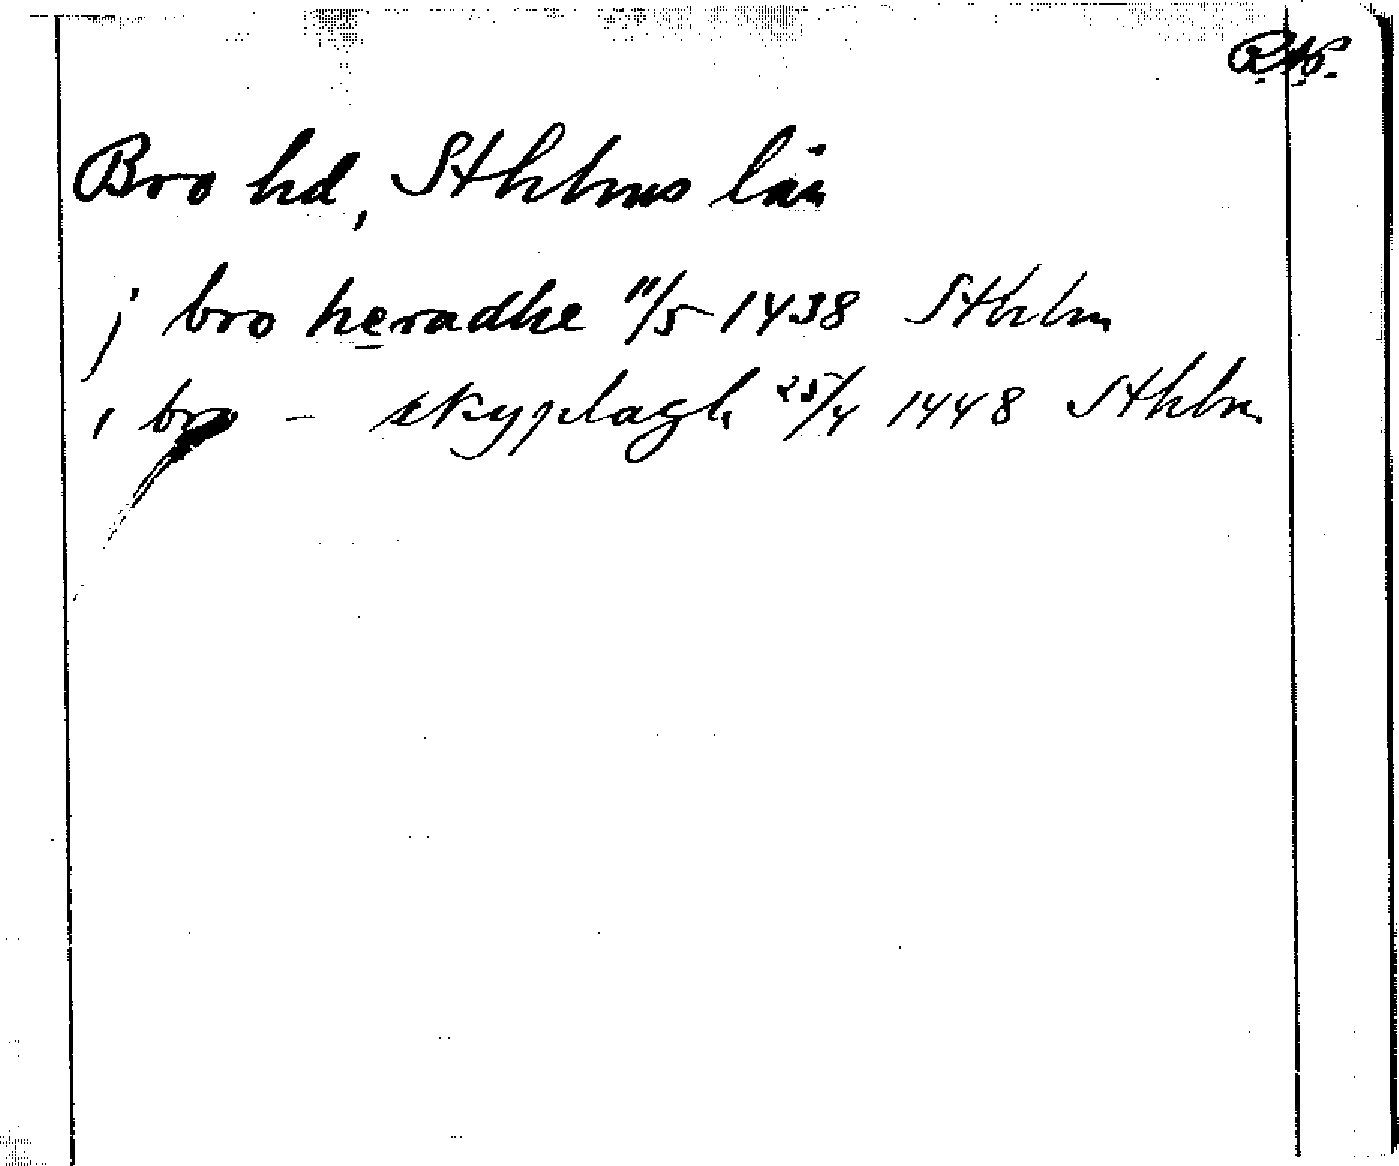 Bro hd, Sthlms län
j bro heradhe 11/5 1438 Sthlm
i bro - skyplagh 25/4 1448 Sthlm